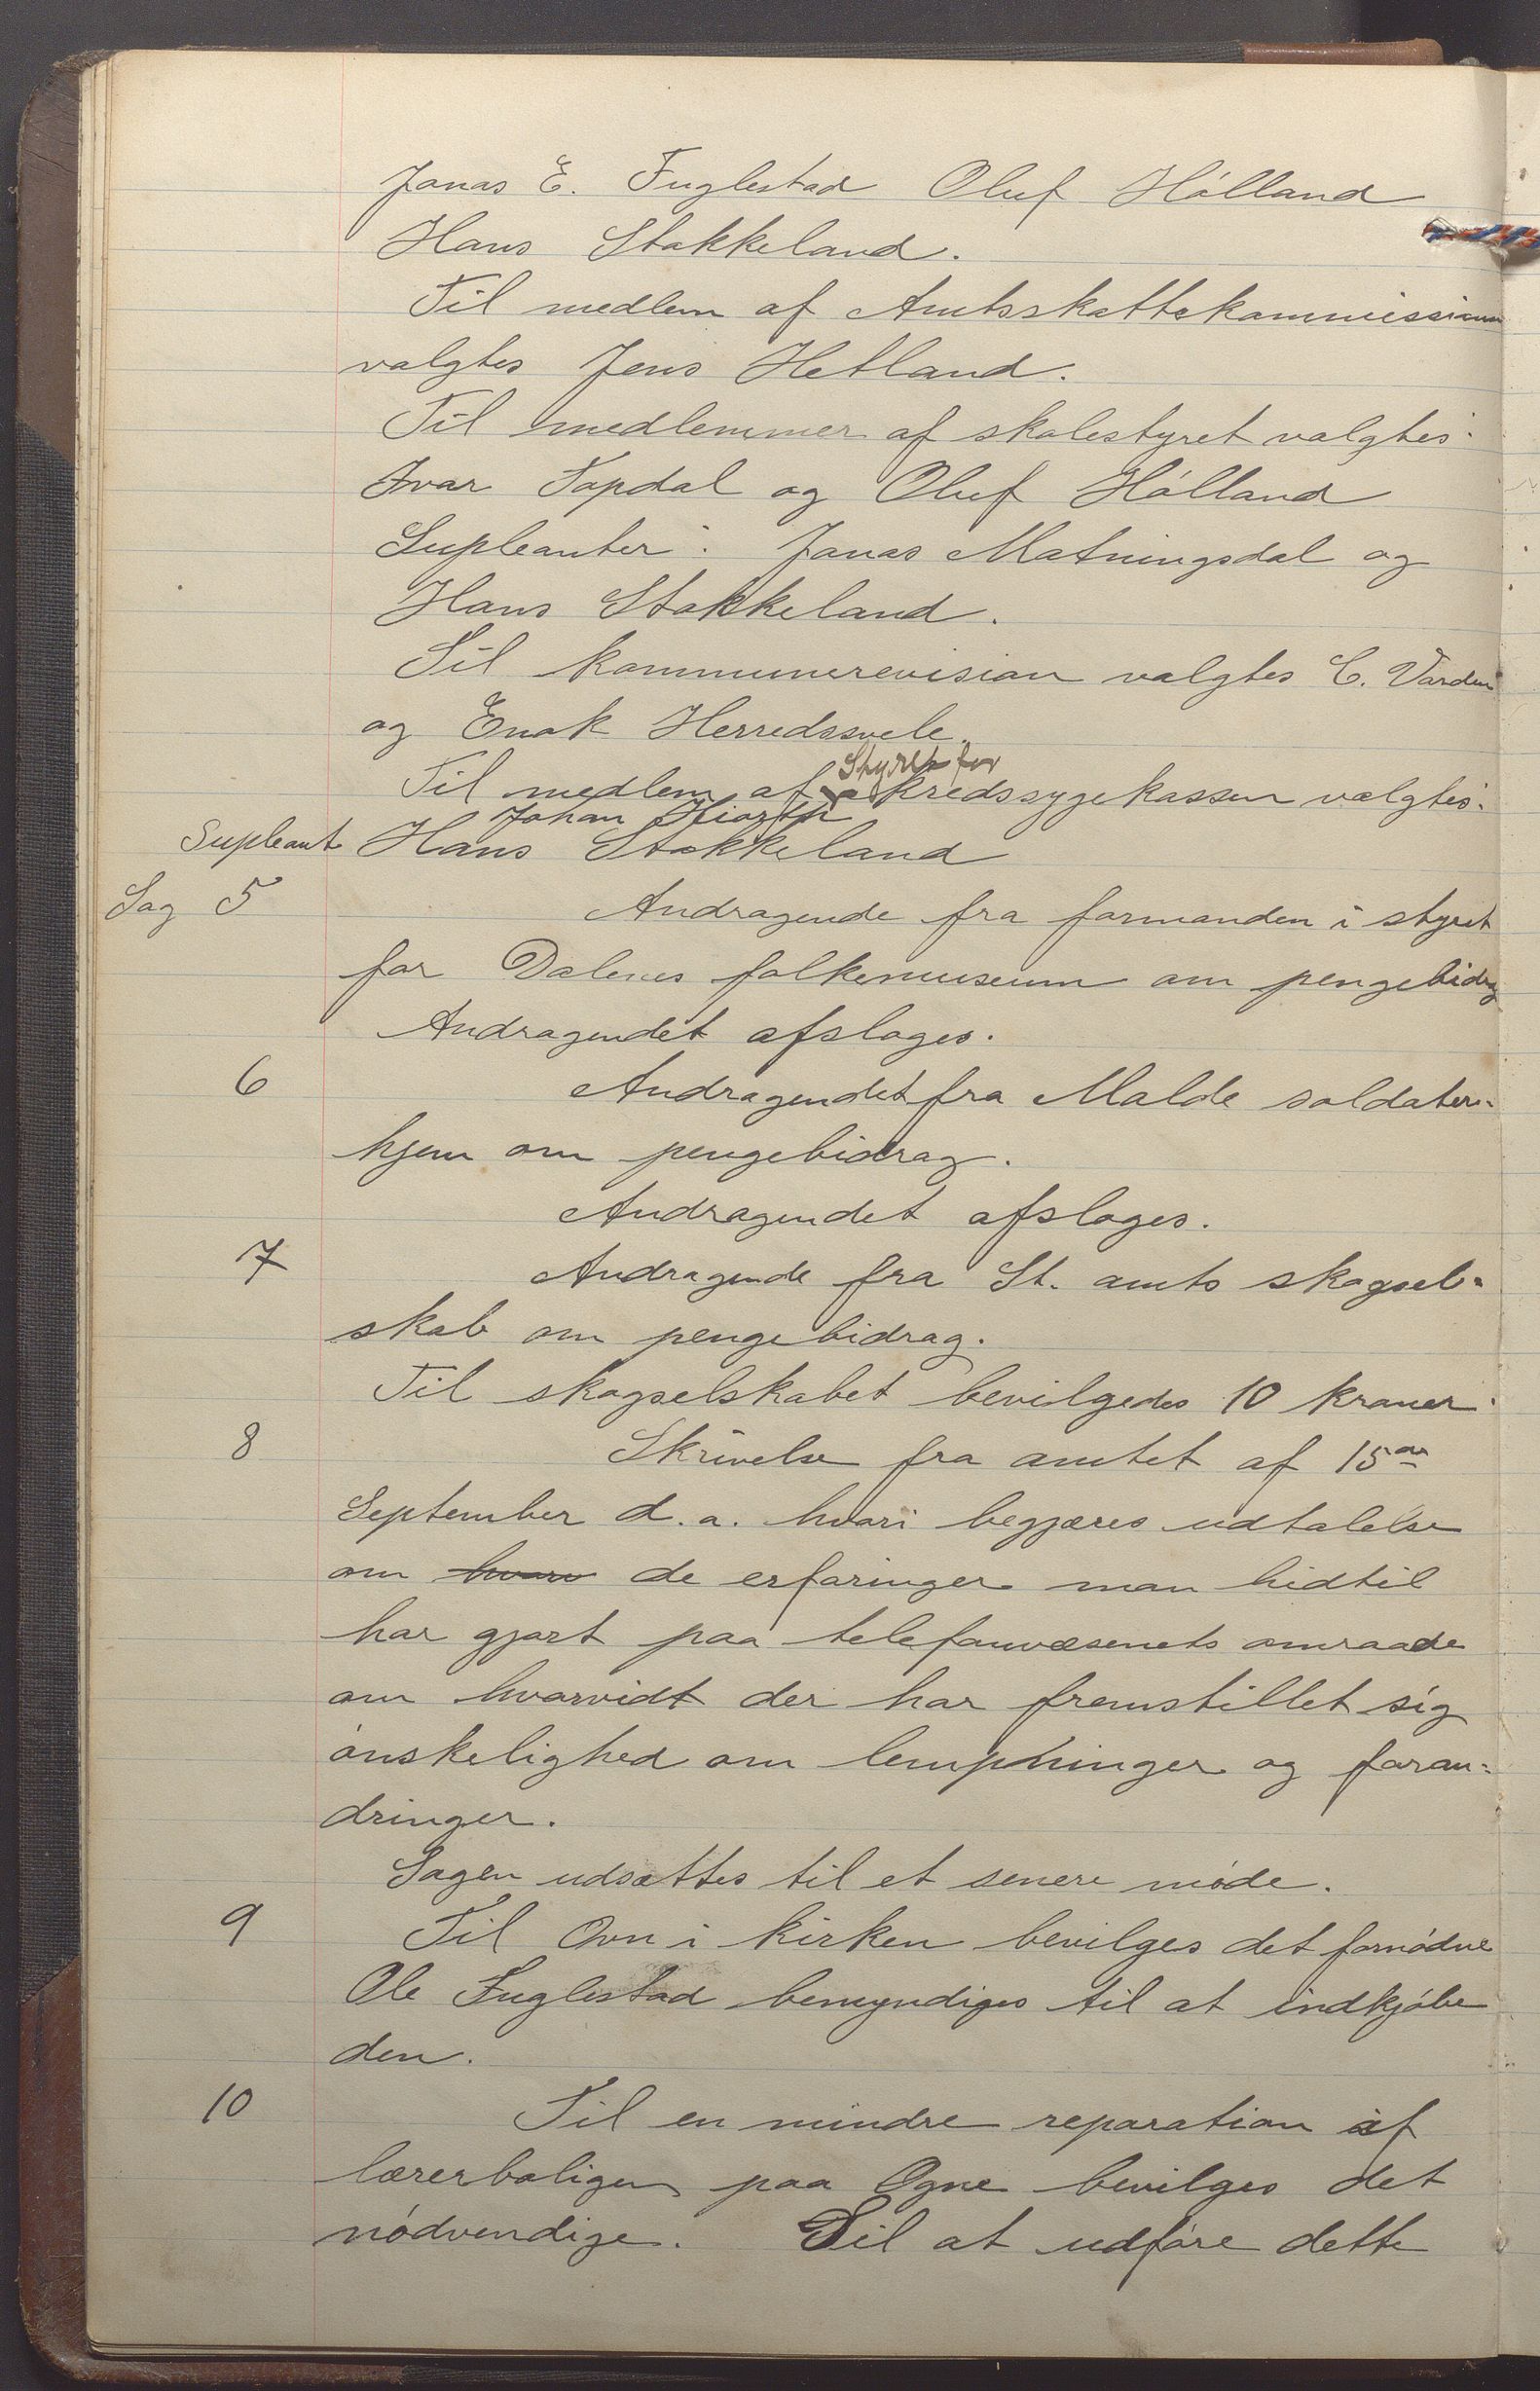 Jonas E. Fuglestad Oluf Hólland
Hans Stokkeland.
Til medlem af Amtsskattekommissionen
valgtes Jens Hetland.
Til medlemmer af skolestyret valgtes:
Ivar Topdal og Oluf Hólland
Supleanter: Jonas Matningsdal og
Hans Stokkeland.
Til kommunerevision valgtes C. Varden
og Enok Herredssvele.
Styret for
Til medlem af kredssygekassen valgtes:
Johan Hiorth
Supleant Hans Stokkeland
Sag 5 Andragende fra formanden i styret
for Dalenes folkemuseum om pengebidrag
Andragendet afsloges.
6 Andragendet fra Malde soldater=
hjem om pengebidrag.
Andragendet afsloges.
7 Andragende fra St. amts skogsel=
skab om pengebidrag.
Til skogselskabet bevilgedes 10 kroner.
8 Skrivelse fra amtet af 15de
September d.a. hvori begjæres udtalelse
om hvori de erfaringer man hidtil
har gjort paa telefonvæsenets omraade
om hvorvidt der har fremstillet sig
ónskelighed om lempninger og foran=
dringer.
Sagen udsættes til et senere móde.
9 Til Ovn i kirken bevilges det fornódne
Ole Fuglestad bemyndiges til at indkjóbe
den.
10 Til en mindre reparation af
lærerboligen paa Ogne bevilges det
nódvendige. Til at udfóre dette